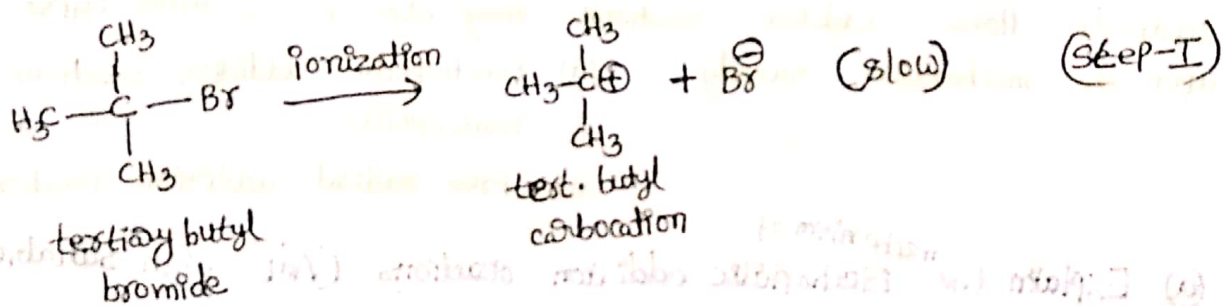 CH3 CH3
H3C—C—Br ionization CH3-C⊕ + Br⊖ (slow) (Step-I)
CH3 CH3
tertiary butyl bromide
tert. butyl carbocation